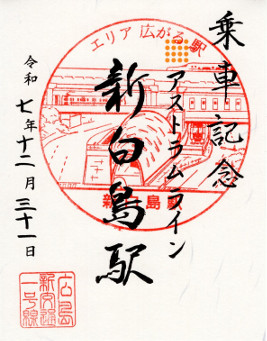 乗車記念
エリア広がる駅
アストラムライン
新白島駅
新 島
令和七年十二月三十一日
広島
新交通
一号線